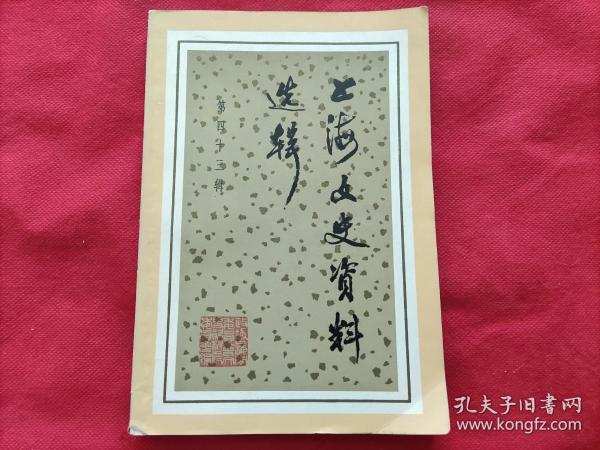 上海文史资料
选辑
第四十三辑
孔夫子旧书网
www.kongfz.com